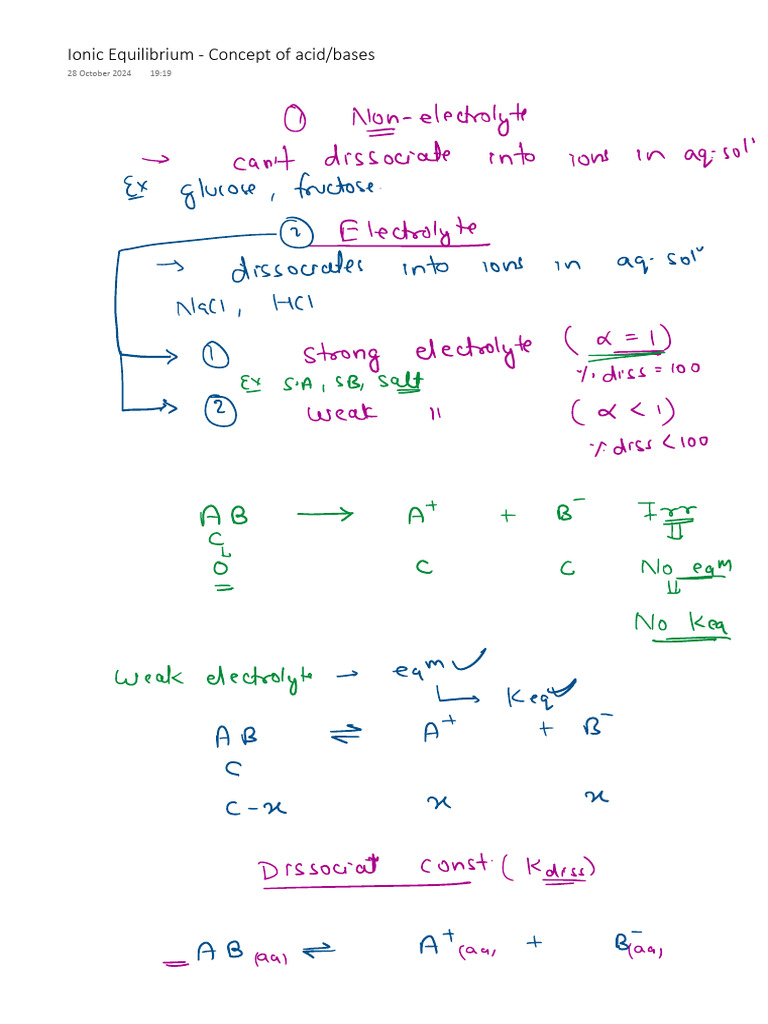 Ionic Equilibrium - Concept of acid/bases
28 October 2024 19:19
① Non-electrolyte
→ can't dissociate into ions in aq. solⁿ
Ex glucose, fructose.
② Electrolyte
→ dissociates into ions in aq. solⁿ
NaCl, HCl
→ ① Strong electrolyte (α = 1)
% diss = 100
Ex S.A, SB, Salt
→ ② weak " (α < 1)
% diss < 100
AB → A⁺ + B⁻ Irr
C
0 C C No eqm
No Keq
Weak electrolyte → eqm ✓
→ Keq ✓
AB ⇌ A⁺ + B⁻
C
C-x x x
Dissociatⁿ const. (Kdiss)
AB(aq) ⇌ A⁺(aq) + B⁻(aq)